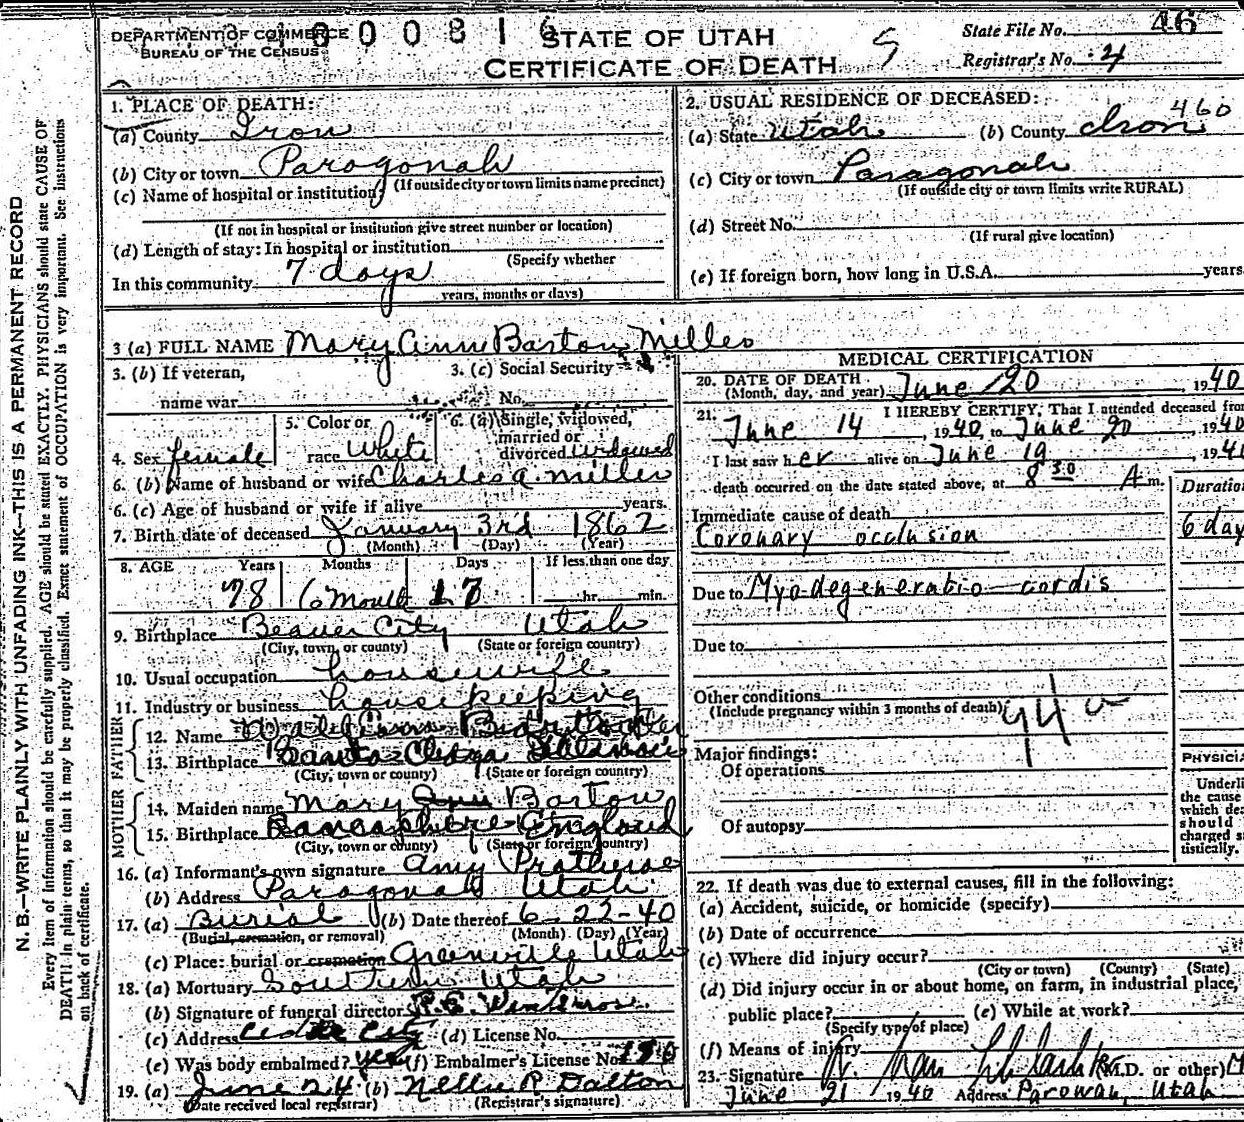 DEPARTMENT OF COMMERCE
BUREAU OF THE CENSUS
0 0 8 1 6
STATE OF UTAH
CERTIFICATE OF DEATH
State File No. 46
Registrar's No. 4
N. B.—WRITE PLAINLY WITH UNFADING INK—THIS IS A PERMANENT RECORD
Every item of information should be carefully supplied. AGE should be stated EXACTLY. PHYSICIANS should state CAUSE OF
DEATH in plain terms, so that it may be properly classified. Exact statement of OCCUPATION is very important. See instructions
on back of certificate.
1. PLACE OF DEATH:
(a) County Iron
(b) City or town Paragonah
(If outside city or town limits name precinct)
(c) Name of hospital or institution
(If not in hospital or institution give street number or location)
(d) Length of stay: In hospital or institution
(Specify whether
In this community 7 days
years, months or days)
2. USUAL RESIDENCE OF DECEASED:
460
(a) State Utah (b) County Iron
(c) City or town Paragonah
(If outside city or town limits write RURAL)
(d) Street No.
(If rural give location)
(e) If foreign born, how long in U.S.A. years
3 (a) FULL NAME Mary Ann Barton Miller
3. (b) If veteran,
name war
3. (c) Social Security
No.
4. Sex female
5. Color or
race White
6. (a) Single, widowed,
married or
divorced widowed
6. (b) Name of husband or wife Charles A. Miller
6. (c) Age of husband or wife if alive years.
7. Birth date of deceased January 3rd 1862
(Month) (Day) (Year)
8. AGE Years Months Days If less than one day
78 6 Month 17 hr. min.
9. Birthplace Beaver City Utah
(City, town, or county) (State or foreign country)
10. Usual occupation housewife
11. Industry or business housekeeping
FATHER
12. Name
13. Birthplace
(City, town or county) (State or foreign country)
MOTHER
14. Maiden name Mary Ann Barton
15. Birthplace England
(City, town or county) (State or foreign country)
16. (a) Informant's own signature Amy
(b) Address Paragonah Utah
17. (a) Burial (b) Date thereof 6-22-40
(Burial, cremation, or removal) (Month) (Day) (Year)
(c) Place: burial or cremation Greenville Utah
18. (a) Mortuary Southern Utah
(b) Signature of funeral director
(c) Address Cedar City (d) License No.
(e) Was body embalmed? yes (f) Embalmer's License No.
19. (a) June 24 (b) Nellie P. Dalton
(Date received local registrar) (Registrar's signature)
MEDICAL CERTIFICATION
20. DATE OF DEATH
(Month, day, and year) June 20, 1940
21. I HEREBY CERTIFY, That I attended deceased from
June 14, 1940, to June 20, 1940
I last saw her alive on June 19, 1940
death occurred on the date stated above, at 8 30 A m.
Duration
Immediate cause of death
Coronary occlusion
6 day
Due to Myodegeneratio cordis
Due to
Other conditions
(Include pregnancy within 3 months of death)
94a
Major findings:
Of operations
Of autopsy
PHYSICIA
Underli
the cause
which dea
should
charged s
tistically.
22. If death was due to external causes, fill in the following:
(a) Accident, suicide, or homicide (specify)
(b) Date of occurrence
(c) Where did injury occur?
(City or town) (County) (State)
(d) Did injury occur in or about home, on farm, in industrial place,
public place? (e) While at work?
(Specify type of place)
(f) Means of injury
23. Signature (M.D. or other) M
June 21 1940 Address Parowan, Utah